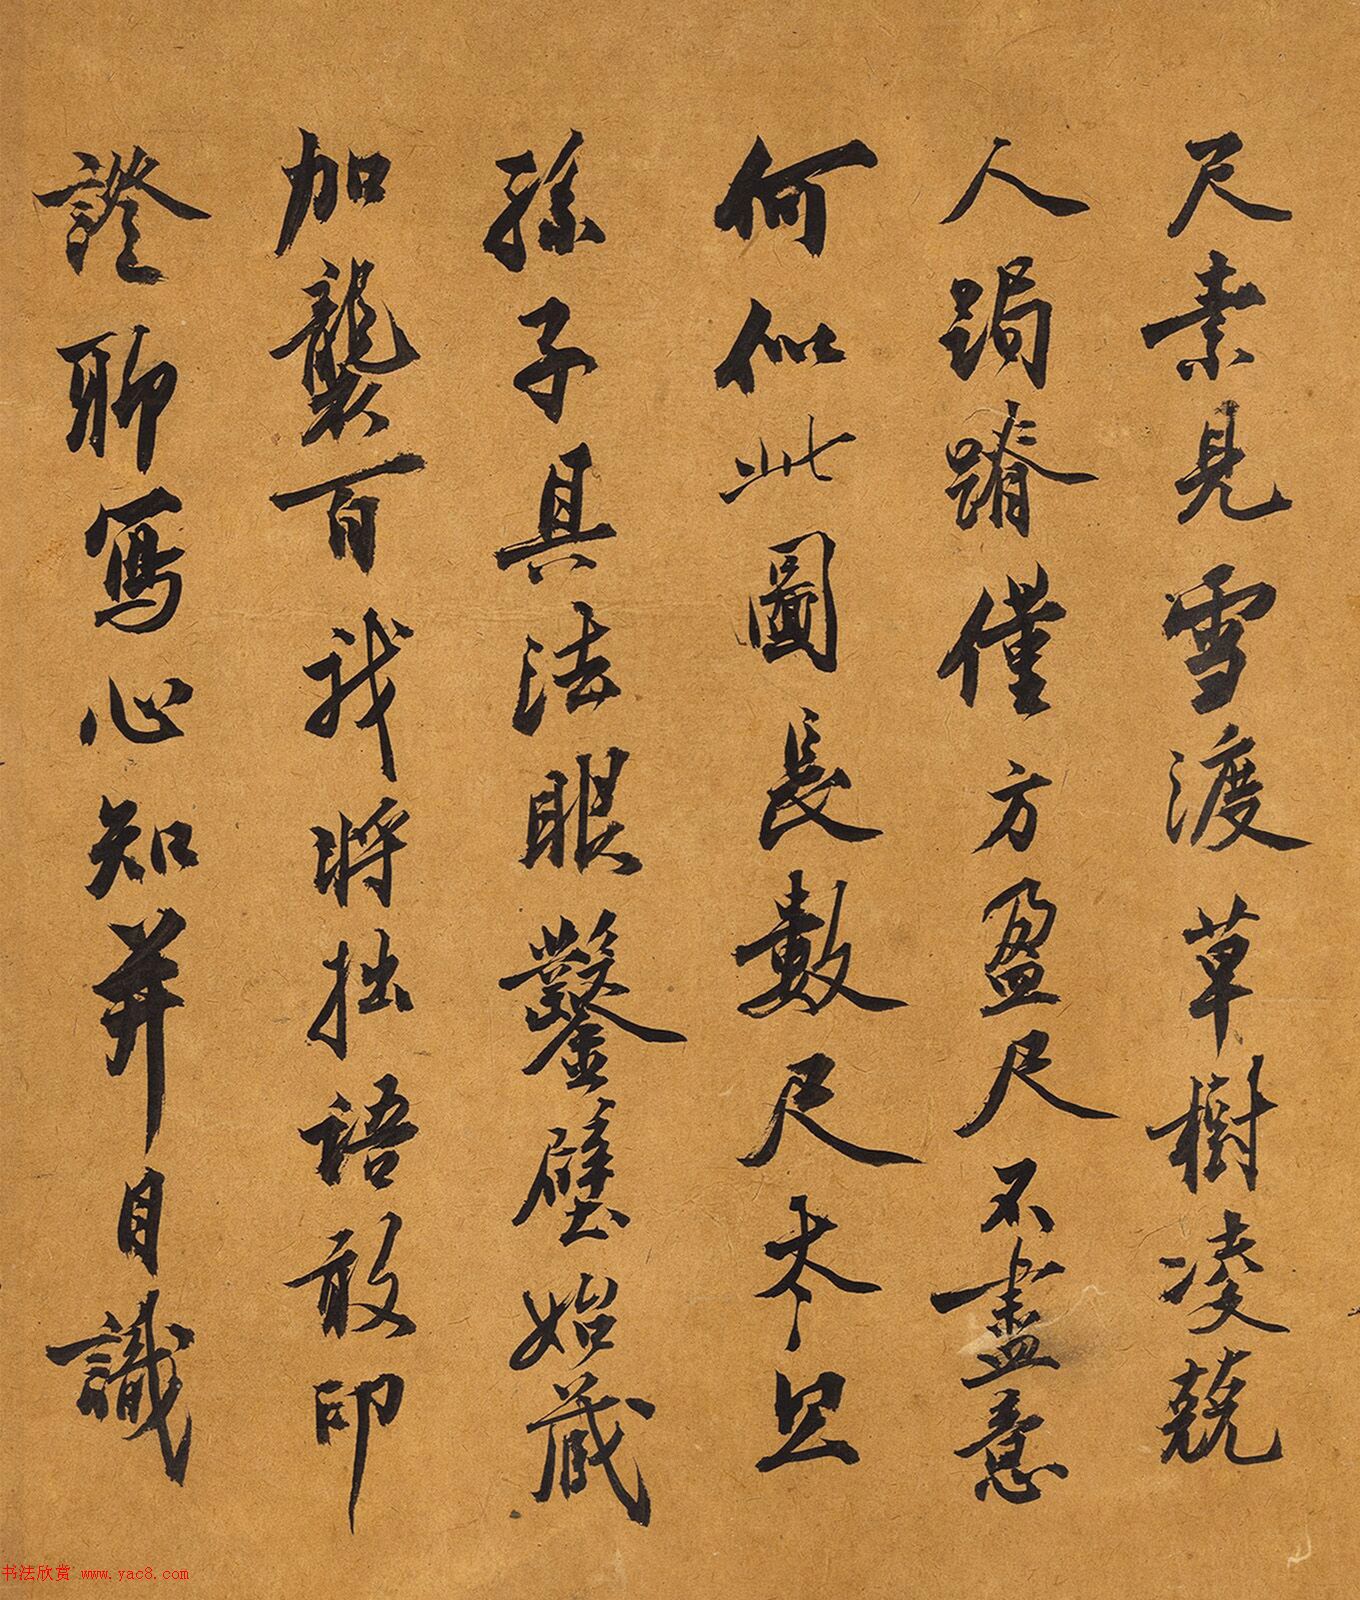 尺素見雪渡草樹凌兢
人跼蹐僅方盈尺不盡意
何似此圖長數尺太息
孫子具法眼鑿壁始藏
加襲百我將拙語敢印
證聊寫心知并自識
书法欣赏 www.yac8.com